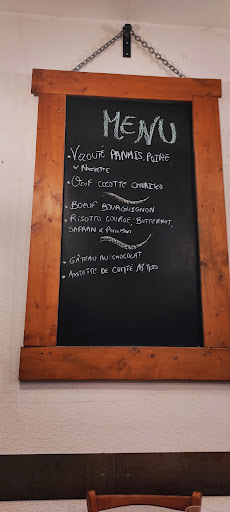 MENU
• VELOUTÉ PANAIS, POIRE
& NOISETTE
• OEUF COCOTTE CHORIZO
• BOEUF BOURGUIGNON
• RISOTTO COURGE BUTTERNUT,
SAFRAN & PARMESAN
• GÂTEAU AU CHOCOLAT
• ASSIETTE DE COMTÉ